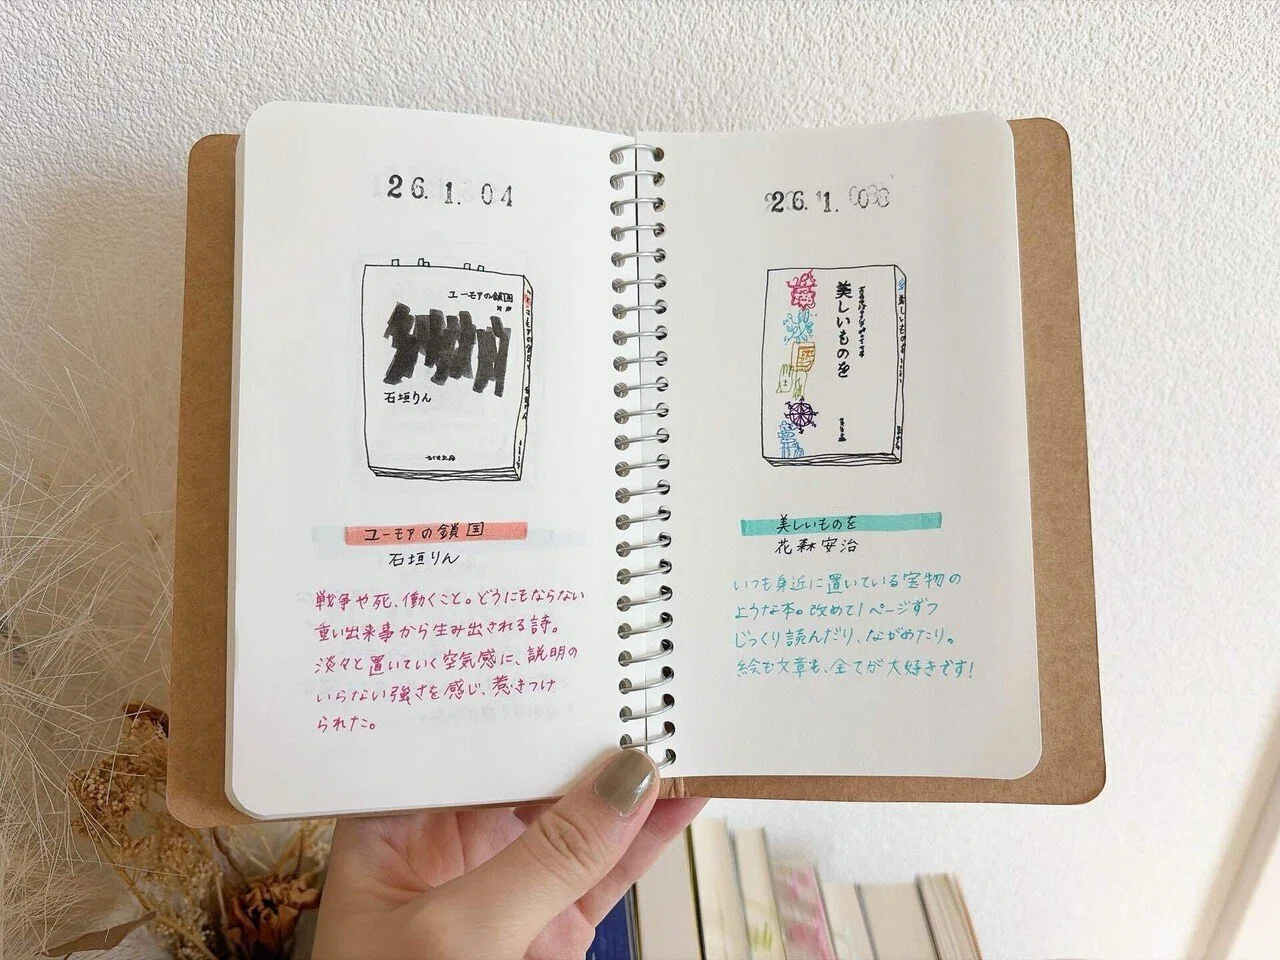 26.1.04
ユーモアの鎖国
石垣りん
ちくま文庫
ユーモアの鎖国
石垣りん
戦争や死、働くこと。どうにもならない
重い出来事から生み出される詩。
淡々と置いていく空気感に、説明の
いらない強さを感じ、惹きつけ
られた。
26.1.
美しいものを
美しいものを
美しいものを
花森安治
いつも身近に置いている宝物の
ような本。改めて1ページずつ
じっくり読んだり、ながめたり。
絵も文章も、全てが大好きです!